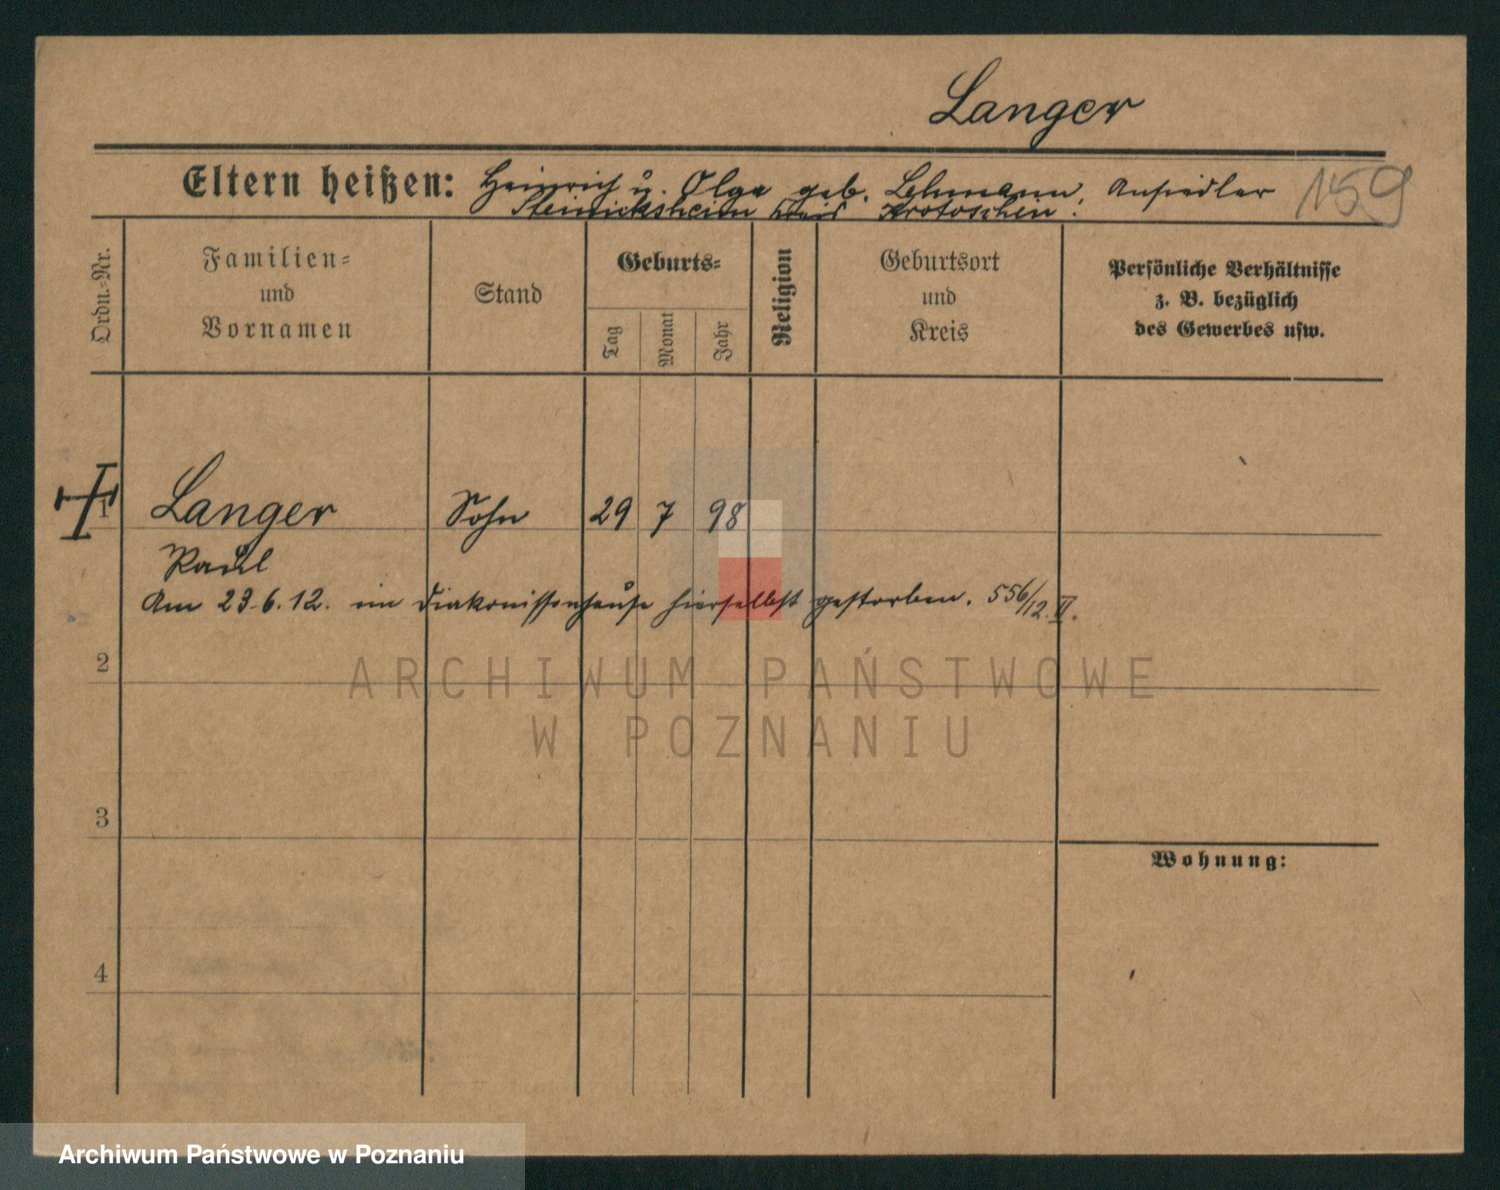 Langer
Eltern heißen: Heinrich u. Olga geb. Lehmann, Ansiedler 159
Steinicksheim Kreis Krotoschin.
Ordn.-Nr.
Familien-
und
Vornamen
Stand
Geburts-
Tag
Monat
Jahr
Religion
Geburtsort
und
Kreis
Persönliche Verhältnisse
z. B. bezüglich
des Gewerbes usw.
1 Langer Sohn 29 7 98
Paul
Am 23.6.12. im Diakonissenhause hierselbst gestorben. 556/12.II.
2
ARCHIWUM PAŃSTWOWE
W POZNANIU
3
Wohnung:
4
Archiwum Państwowe w Poznaniu